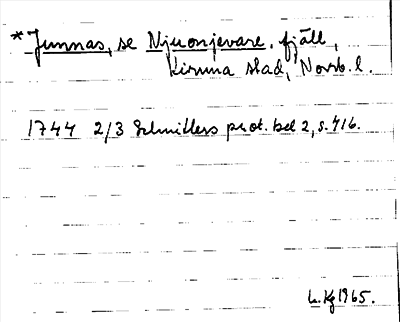 *Junnas, se Njuonjevare, fjäll,
Kiruna stad, Norrb. l.
1744 2/3 Schnitlers prot. bd 2, s. 416.
L. Kg 1965.